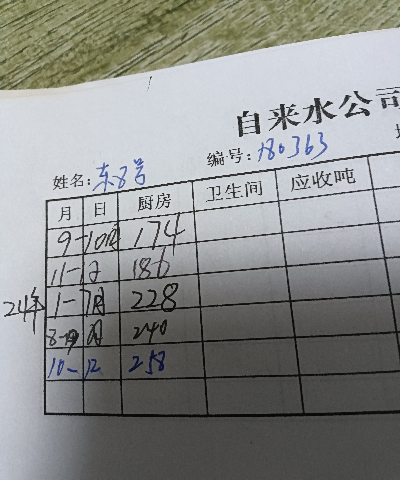 自来水公司
姓名：东8号 编号：180363
月 日 厨房 卫生间 应收吨
9-10月 174
11-12 186
24年 1-7月 228
8-9月 240
10-12 258